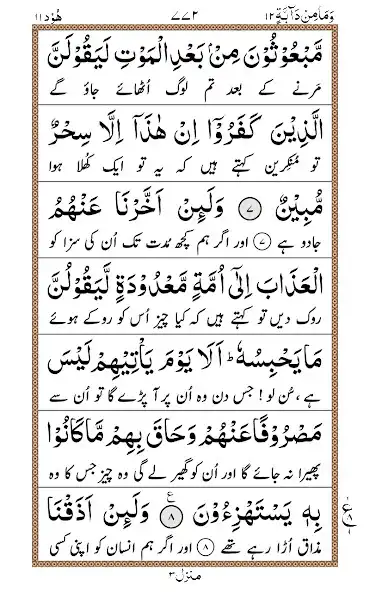 وَمَا مِنْ دَآبَّةٍ ١٢ ٧٧٢ هُوْد ١١
مَّبْعُوْثُوْنَ مِنْۢ بَعْدِ الْمَوْتِ لَيَقُوْلَنَّ
مَرنے کے بعد تم لوگ اُٹھائے جاؤ گے
الَّذِيْنَ كَفَرُوْٓا اِنْ هٰذَآ اِلَّا سِحْرٌ
تو مُنکِرین کہتے ہیں کہ یہ تو ایک کُھلا ہوا
مُّبِيْنٌ ٧ وَلَئِنْ اَخَّرْنَا عَنْهُمُ
جادو ہے ٧ اور اگر ہم کچھ مُدت تک اُن کی سزا کو
الْعَذَابَ اِلٰٓى اُمَّةٍ مَّعْدُوْدَةٍ لَّيَقُوْلُنَّ
روک دیں تو کہتے ہیں کہ کیا چیز اُس کو روکے ہوئے
مَا يَحْبِسُهٗ ؕ اَلَا يَوْمَ يَاْتِيْهِمْ لَيْسَ
ہے، سُن لو! جس دن وہ اُن پر آ پڑے گا تو اُن سے
مَصْرُوْفًا عَنْهُمْ وَحَاقَ بِهِمْ مَّا كَانُوْا
پھیرا نہ جائے گا اور اُن کو گھیر لے گی وہ چیز جس کا وہ
بِهٖ يَسْتَهْزِءُوْنَ ٨ ع وَلَئِنْ اَذَقْنَا
مذاق اُڑا رہے تھے ٨ اور اگر ہم انسان کو اپنی کسی
منزل ٣